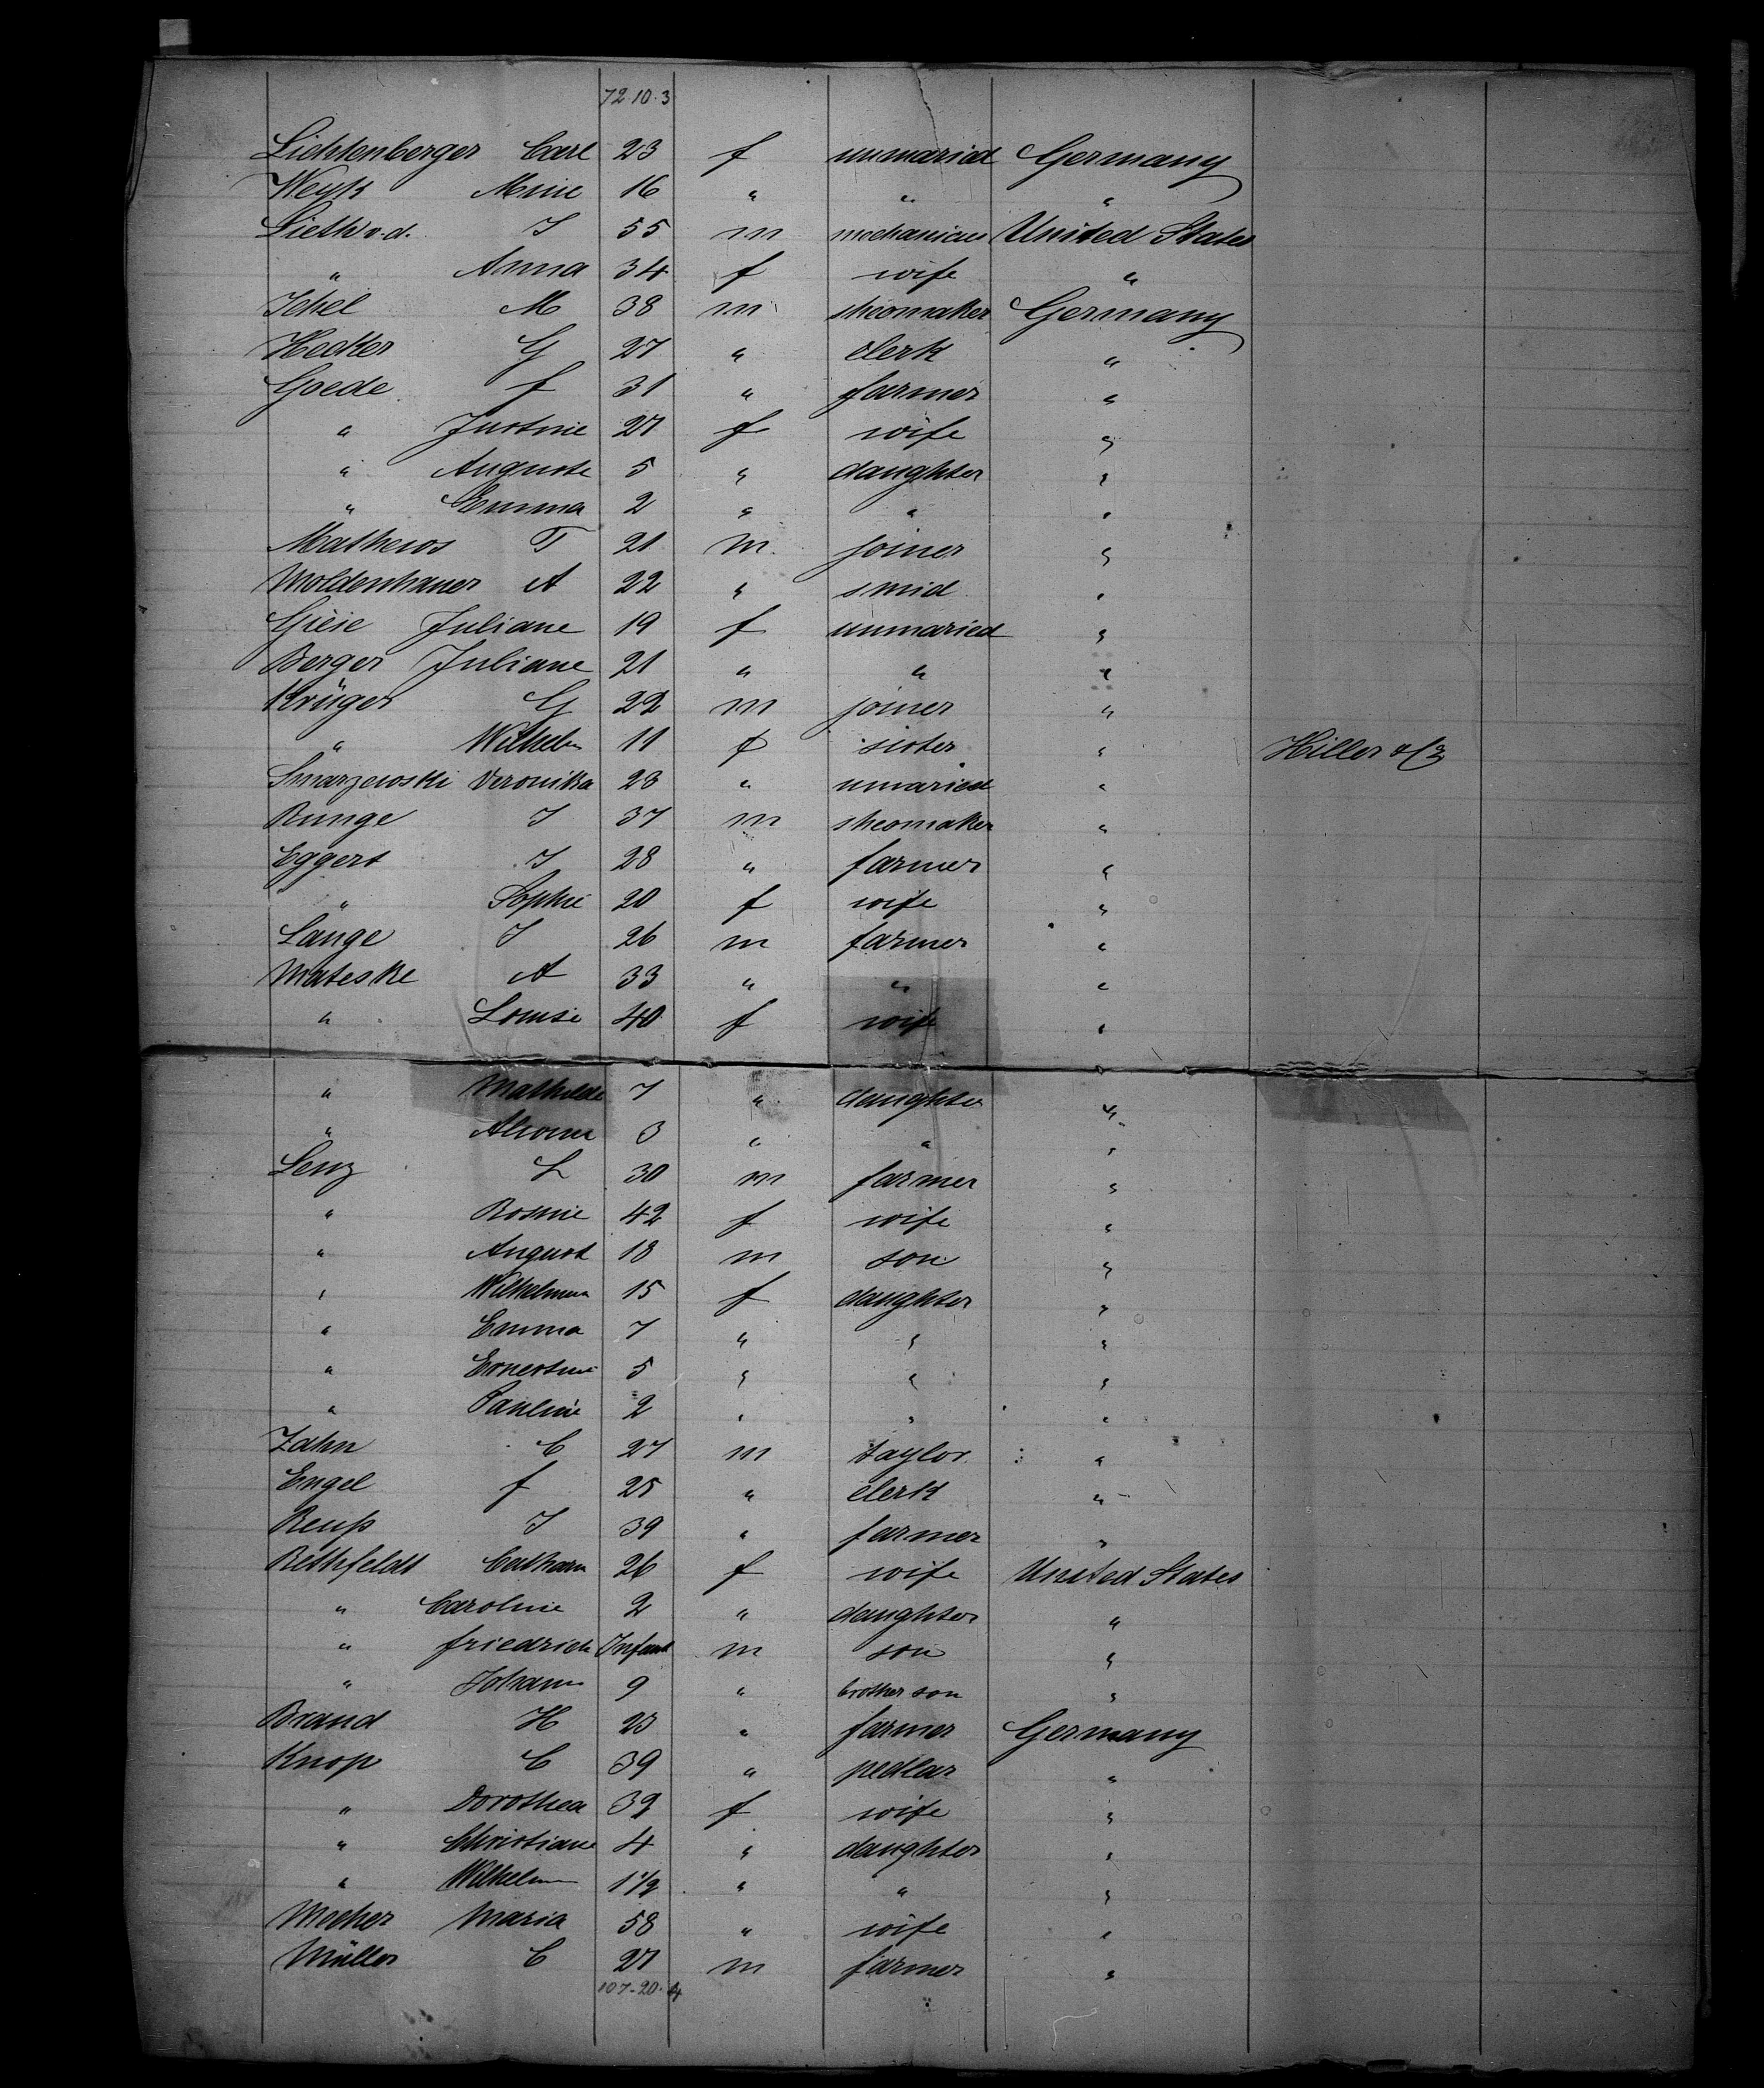 72.10.3
Lichtenberger Carl 23 f unmaried Germany
Weyh Mine 16 " " "
Lieth v. d. J 55 m mechanicus United States
" Anna 34 f wife "
Ichel M 38 m sheomaker Germany
Hecker G 27 " clerk "
Goede f 31 " farmer "
" Justine 27 f wife "
" Auguste 5 " daughter "
" Emma 2 " " "
Mathews T 21 m joiner "
Moldenhauer A 22 " smid "
Juliane 19 f unmaried "
Berger Juliane 21 " " "
Krüger G 22 m joiner "
" Wilhelm 11 f sister " Hiller & Co
Smarzewski Veronika 23 " unmaried "
Runge J 37 m sheomaker "
Eggert J 28 " farmer "
" Sophie 20 f wife "
Lange J 26 m farmer "
Mateske A 33 " " "
" Louise 40 f wife "
" Mathilde 7 " daughter "
" 3 " " "
Lenz L 30 m farmer "
" Rosine 42 f wife "
" August 18 m son "
" Wilhelmin 15 f daughter "
" Emma 7 " " "
" Ernestine 5 " " "
" Pauline 2 " " "
Zahn C 27 m taylor "
Engel f 25 " clerk "
Reuß J 39 " farmer "
Rethfeldt Catharn 26 f wife United States
" Caroline 2 " daughter "
" friedrich Infant m son "
" Johann 9 " brother son "
Brand H 23 " farmer Germany
Knop C 39 " pedlar "
" Dorothea 32 f wife "
" Christiane 4 " daughter "
" Wilhelm 1 1/2 " " "
Mecher Maria 58 " wife "
Müller C 27 m farmer "
107-20.4